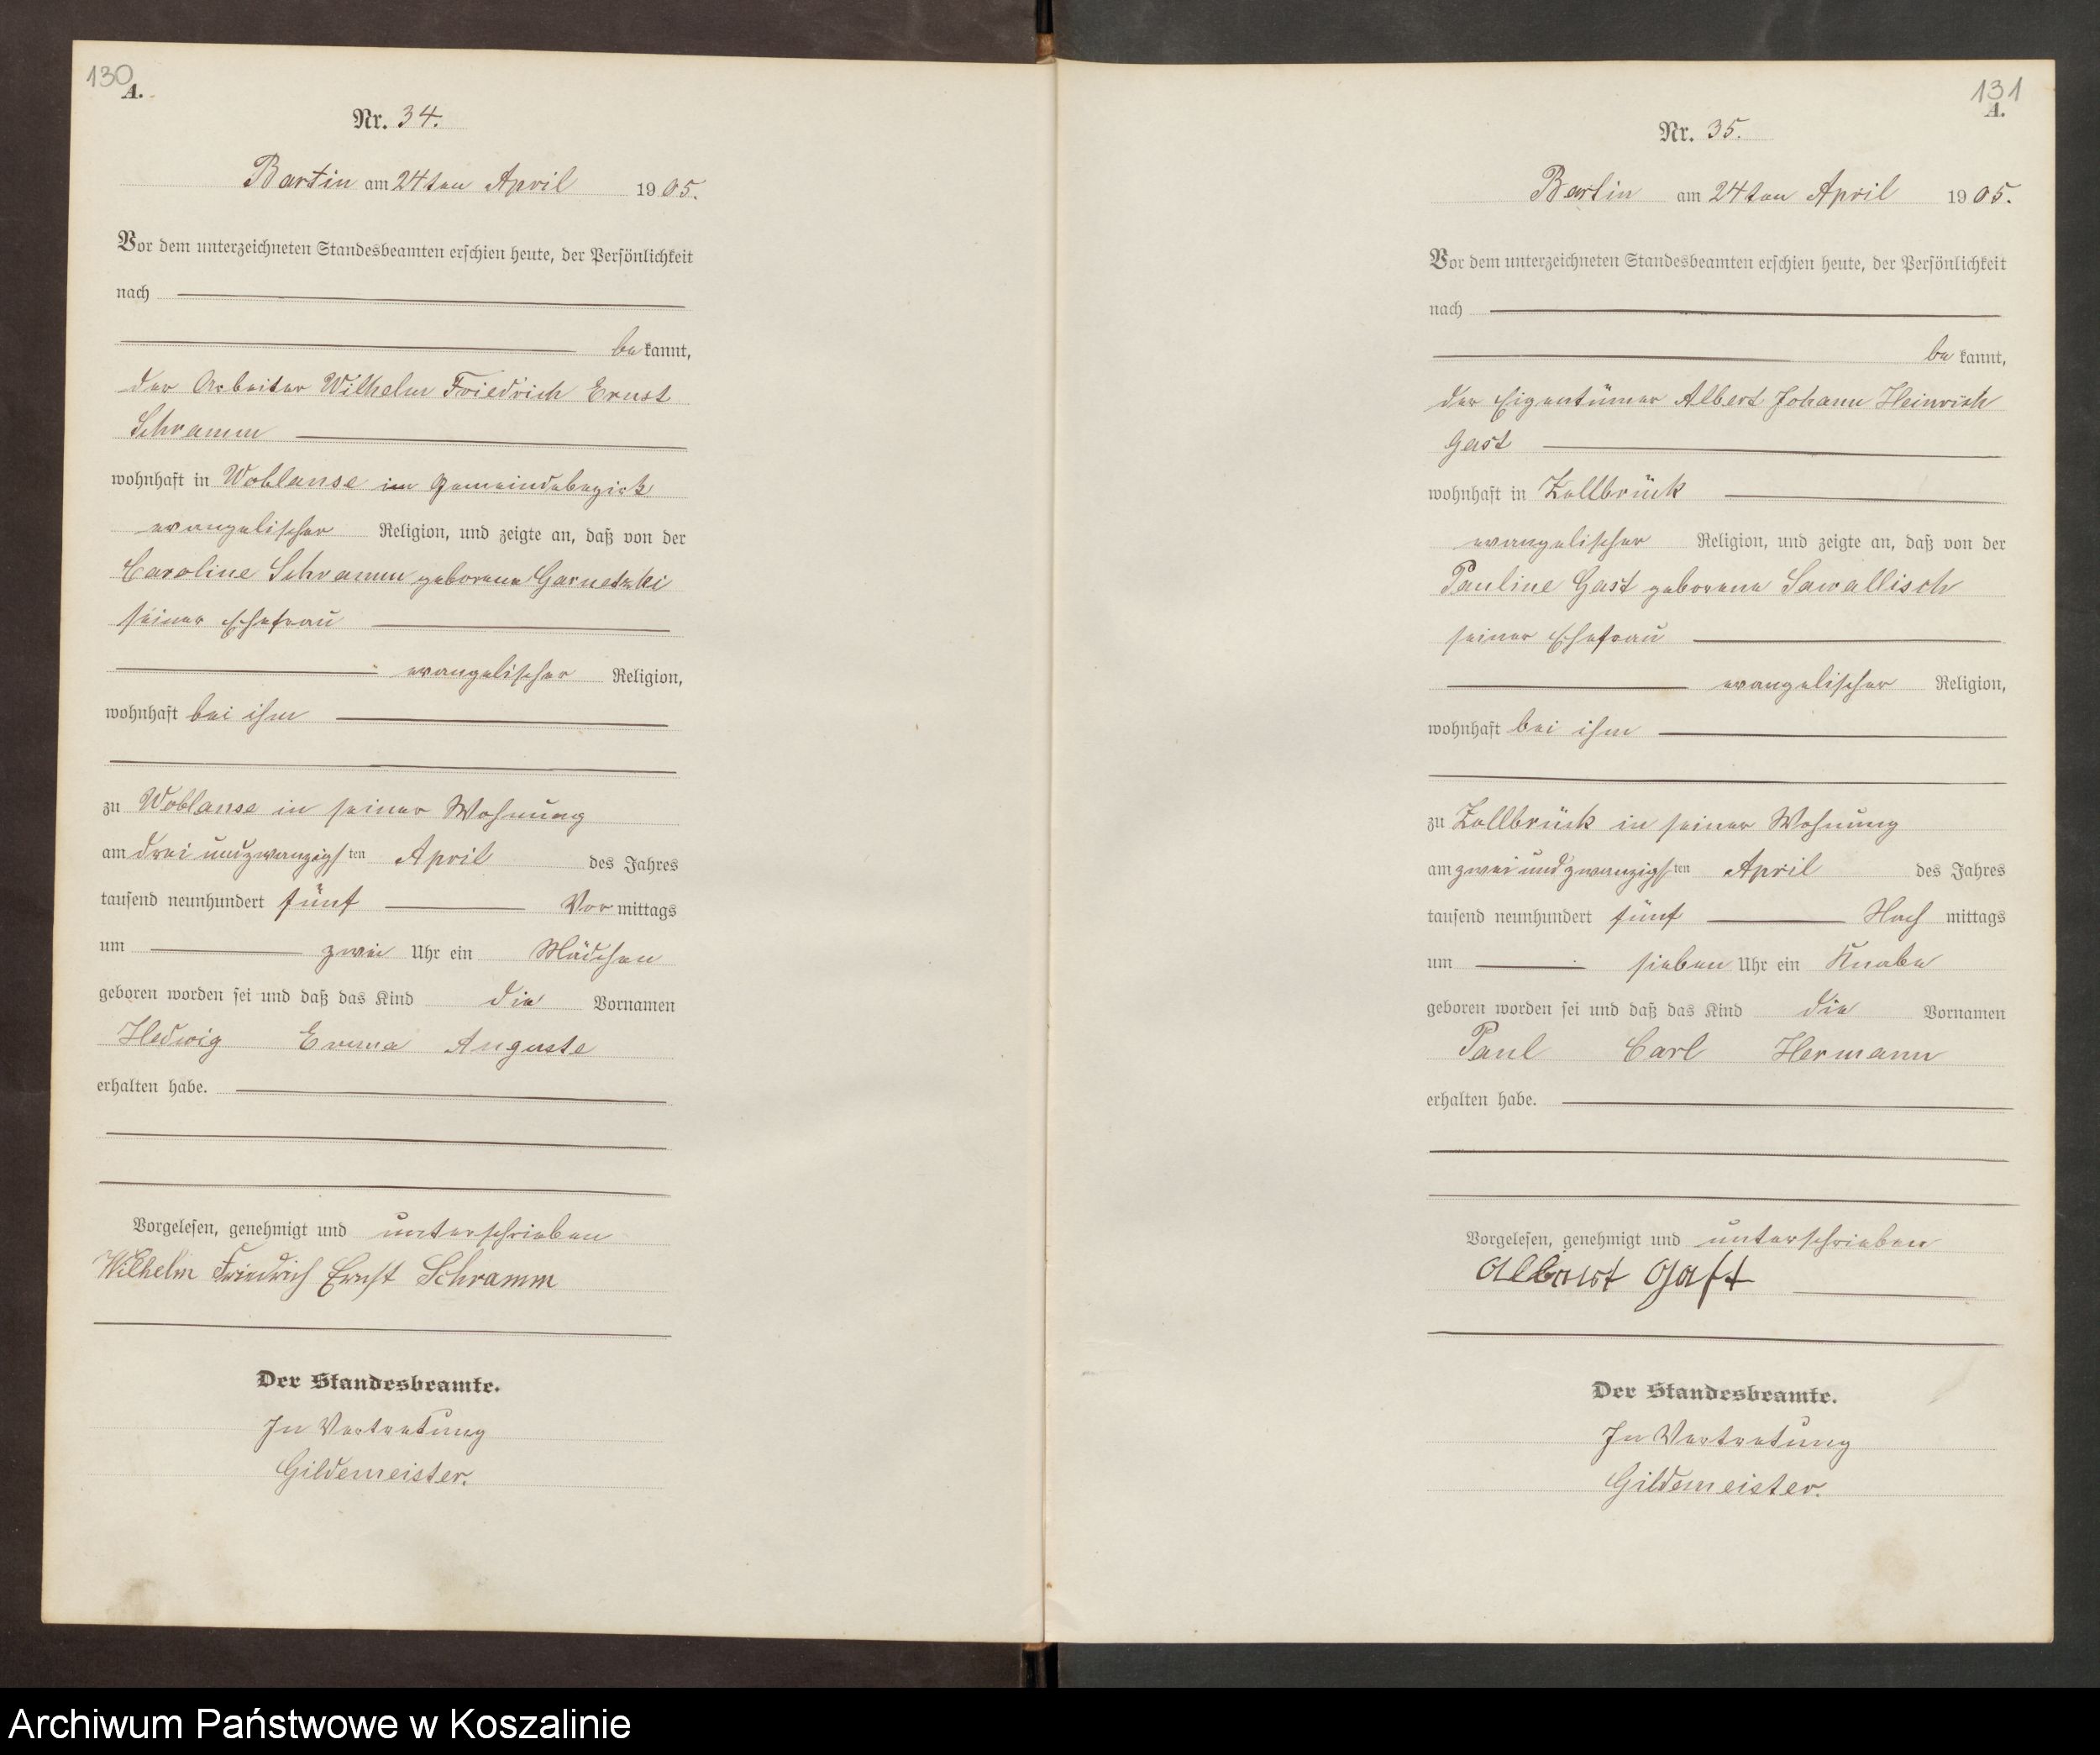 130
A.
Nr. 34.
Bartin am 24ten April 1905.
Vor dem unterzeichneten Standesbeamten erschien heute, der Persönlichkeit
nach
bekannt,
der Arbeiter Wilhelm Friedrich Ernst
Schramm
wohnhaft in Woblanse im Gemeindebezirk
evangelischer Religion, und zeigte an, daß von der
Caroline Schramm geborene Garnetzki
seiner Ehefrau
evangelischer Religion,
wohnhaft bei ihm
zu Woblanse in seiner Wohnung
am dreiundzwanzigsten April des Jahres
tausend neunhundert fünf Vormittags
um zwei Uhr ein Mädchen
geboren worden sei und daß das Kind die Vornamen
Hedwig Emma Auguste
erhalten habe.
Vorgelesen, genehmigt und unterschrieben
Wilhelm Friedrich Ernst Schramm
Der Standesbeamte.
In Vertretung
Gildemeister.
131
A.
Nr. 35.
Bartin am 24ten April 1905.
Vor dem unterzeichneten Standesbeamten erschien heute, der Persönlichkeit
nach
bekannt,
der Eigentümer Albert Johann Heinrich
Gast
wohnhaft in Zollbrück
evangelischer Religion, und zeigte an, daß von der
Pauline Gast geborene Sawallisch
seiner Ehefrau
evangelischer Religion,
wohnhaft bei ihm
zu Zollbrück in seiner Wohnung
am zweiundzwanzigsten April des Jahres
tausend neunhundert fünf Nachmittags
um sieben Uhr ein Knabe
geboren worden sei und daß das Kind die Vornamen
Paul Carl Hermann
erhalten habe.
Vorgelesen, genehmigt und unterschrieben
Albert Gast
Der Standesbeamte.
In Vertretung
Gildemeister.
Archiwum Państwowe w Koszalinie